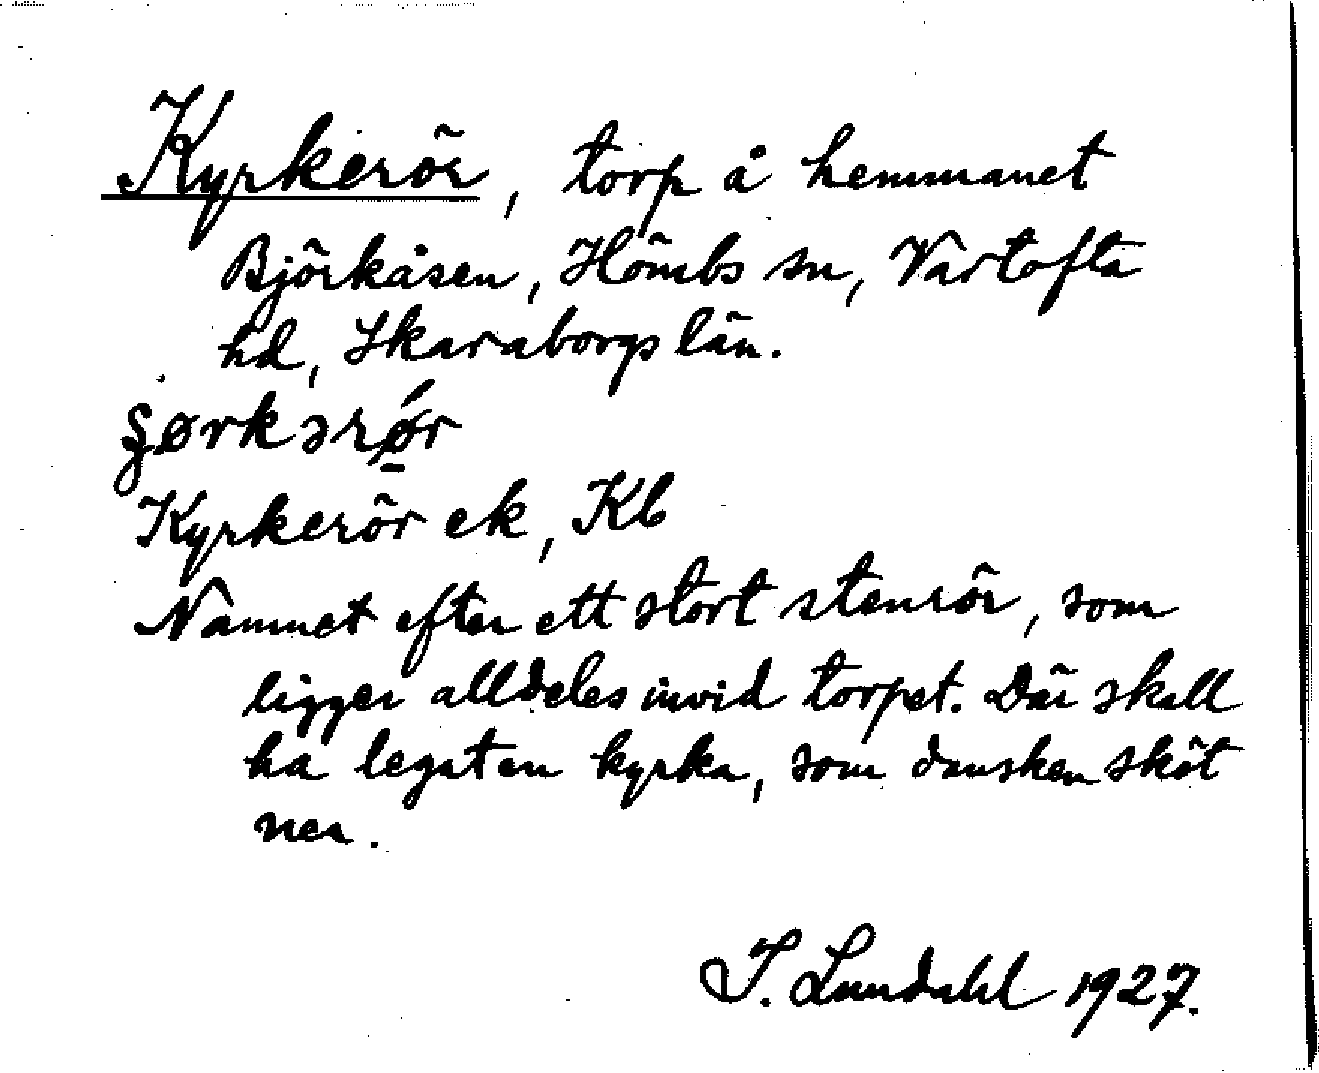 Kyrkerör, torp å hemmanet
Björkåsen, Hömbs sn, Vartofta
hd, Skaraborgs län.
Kyrkerör ek, Kb
Namnet efter ett stort stenrör, som
ligger alldeles invid torpet. Där skall
ha legat en kyrka, som dansken sköt
ner.
I. Lundahl 1927.